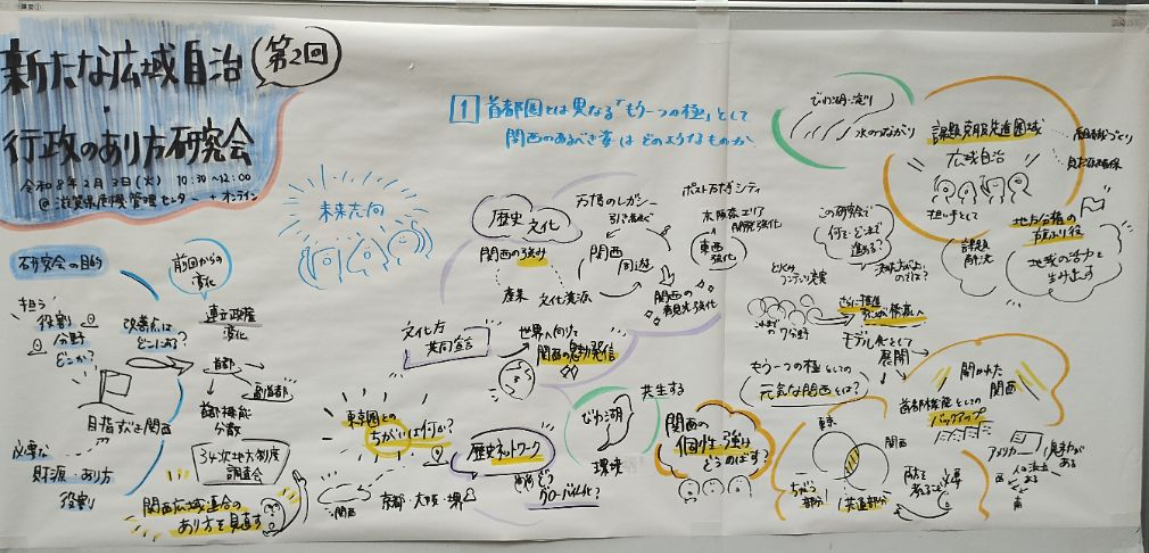 新たな広域自治
第2回
・
行政のあり方研究会
令和8年2月3日(火) 10:30~12:00
@滋賀県危機管理センター + オンライン
研究会の目的
担う
役割
分野
どこか?
目指すべき関西
必要な
財源・あり方
役割
前回からの
変化
連立政権
変化
改善点は
どこにある?
首都
副首都
首都機能
分散
34次地方制度
調査会
関西広域連合の
あり方を見直す
未来志向
1 首都圏とは異なる「もう一つの極」として
関西のあるべき姿はどのようなものか
歴史
文化
関西の強み
産業 文化資源
万博のレガシー
引き継ぐ
関西
周遊
関西の
観光強化
ポスト万博シティ
大阪森エリア
開発強化
東西
強化
文化庁
共同宣言
世界へ向けて
関西の魅力発信
東京圏との
ちがいは何か?
関西
京都・大阪・堺
歴史ネットワーク
グローバル化?
びわ湖
共生する
環境
関西の
個性・強み
どうのばす?
びわ湖・淀川
水のつながり
課題克服先進圏域
広域自治
担い手として
課題
解決
地方分権の
旗ふり役
地域の活力を
生み出す
この研究会で
何を・どこまで
進める?
コンテンツ充実
7分野
さらに推進
モデル食として
展開
もう一つの極としての
元気な関西とは?
開かれた
関西
首都機能としての
バックアップ
東京
関西
ちがう
部分
共通部分
両方
考える必要
アメリカ
西
南
ある